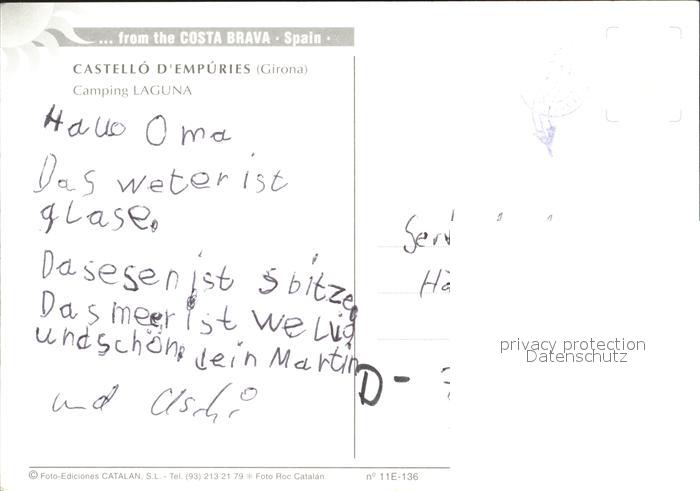 ... from the COSTA BRAVA · Spain ·
CASTELLÓ D'EMPÚRIES (Girona)
Camping LAGUNA
Hallo Oma
Das weter ist
glase.
Das esen ist sbitze
Das meer ist wellig
und schön. dein Martin
und Uschi
Ger
Hä
D -
privacy protection
Datenschutz
© Foto-Ediciones CATALAN, S.L. - Tel. (93) 213 21 79 ✳ Foto Roc Catalán
nº 11E-136